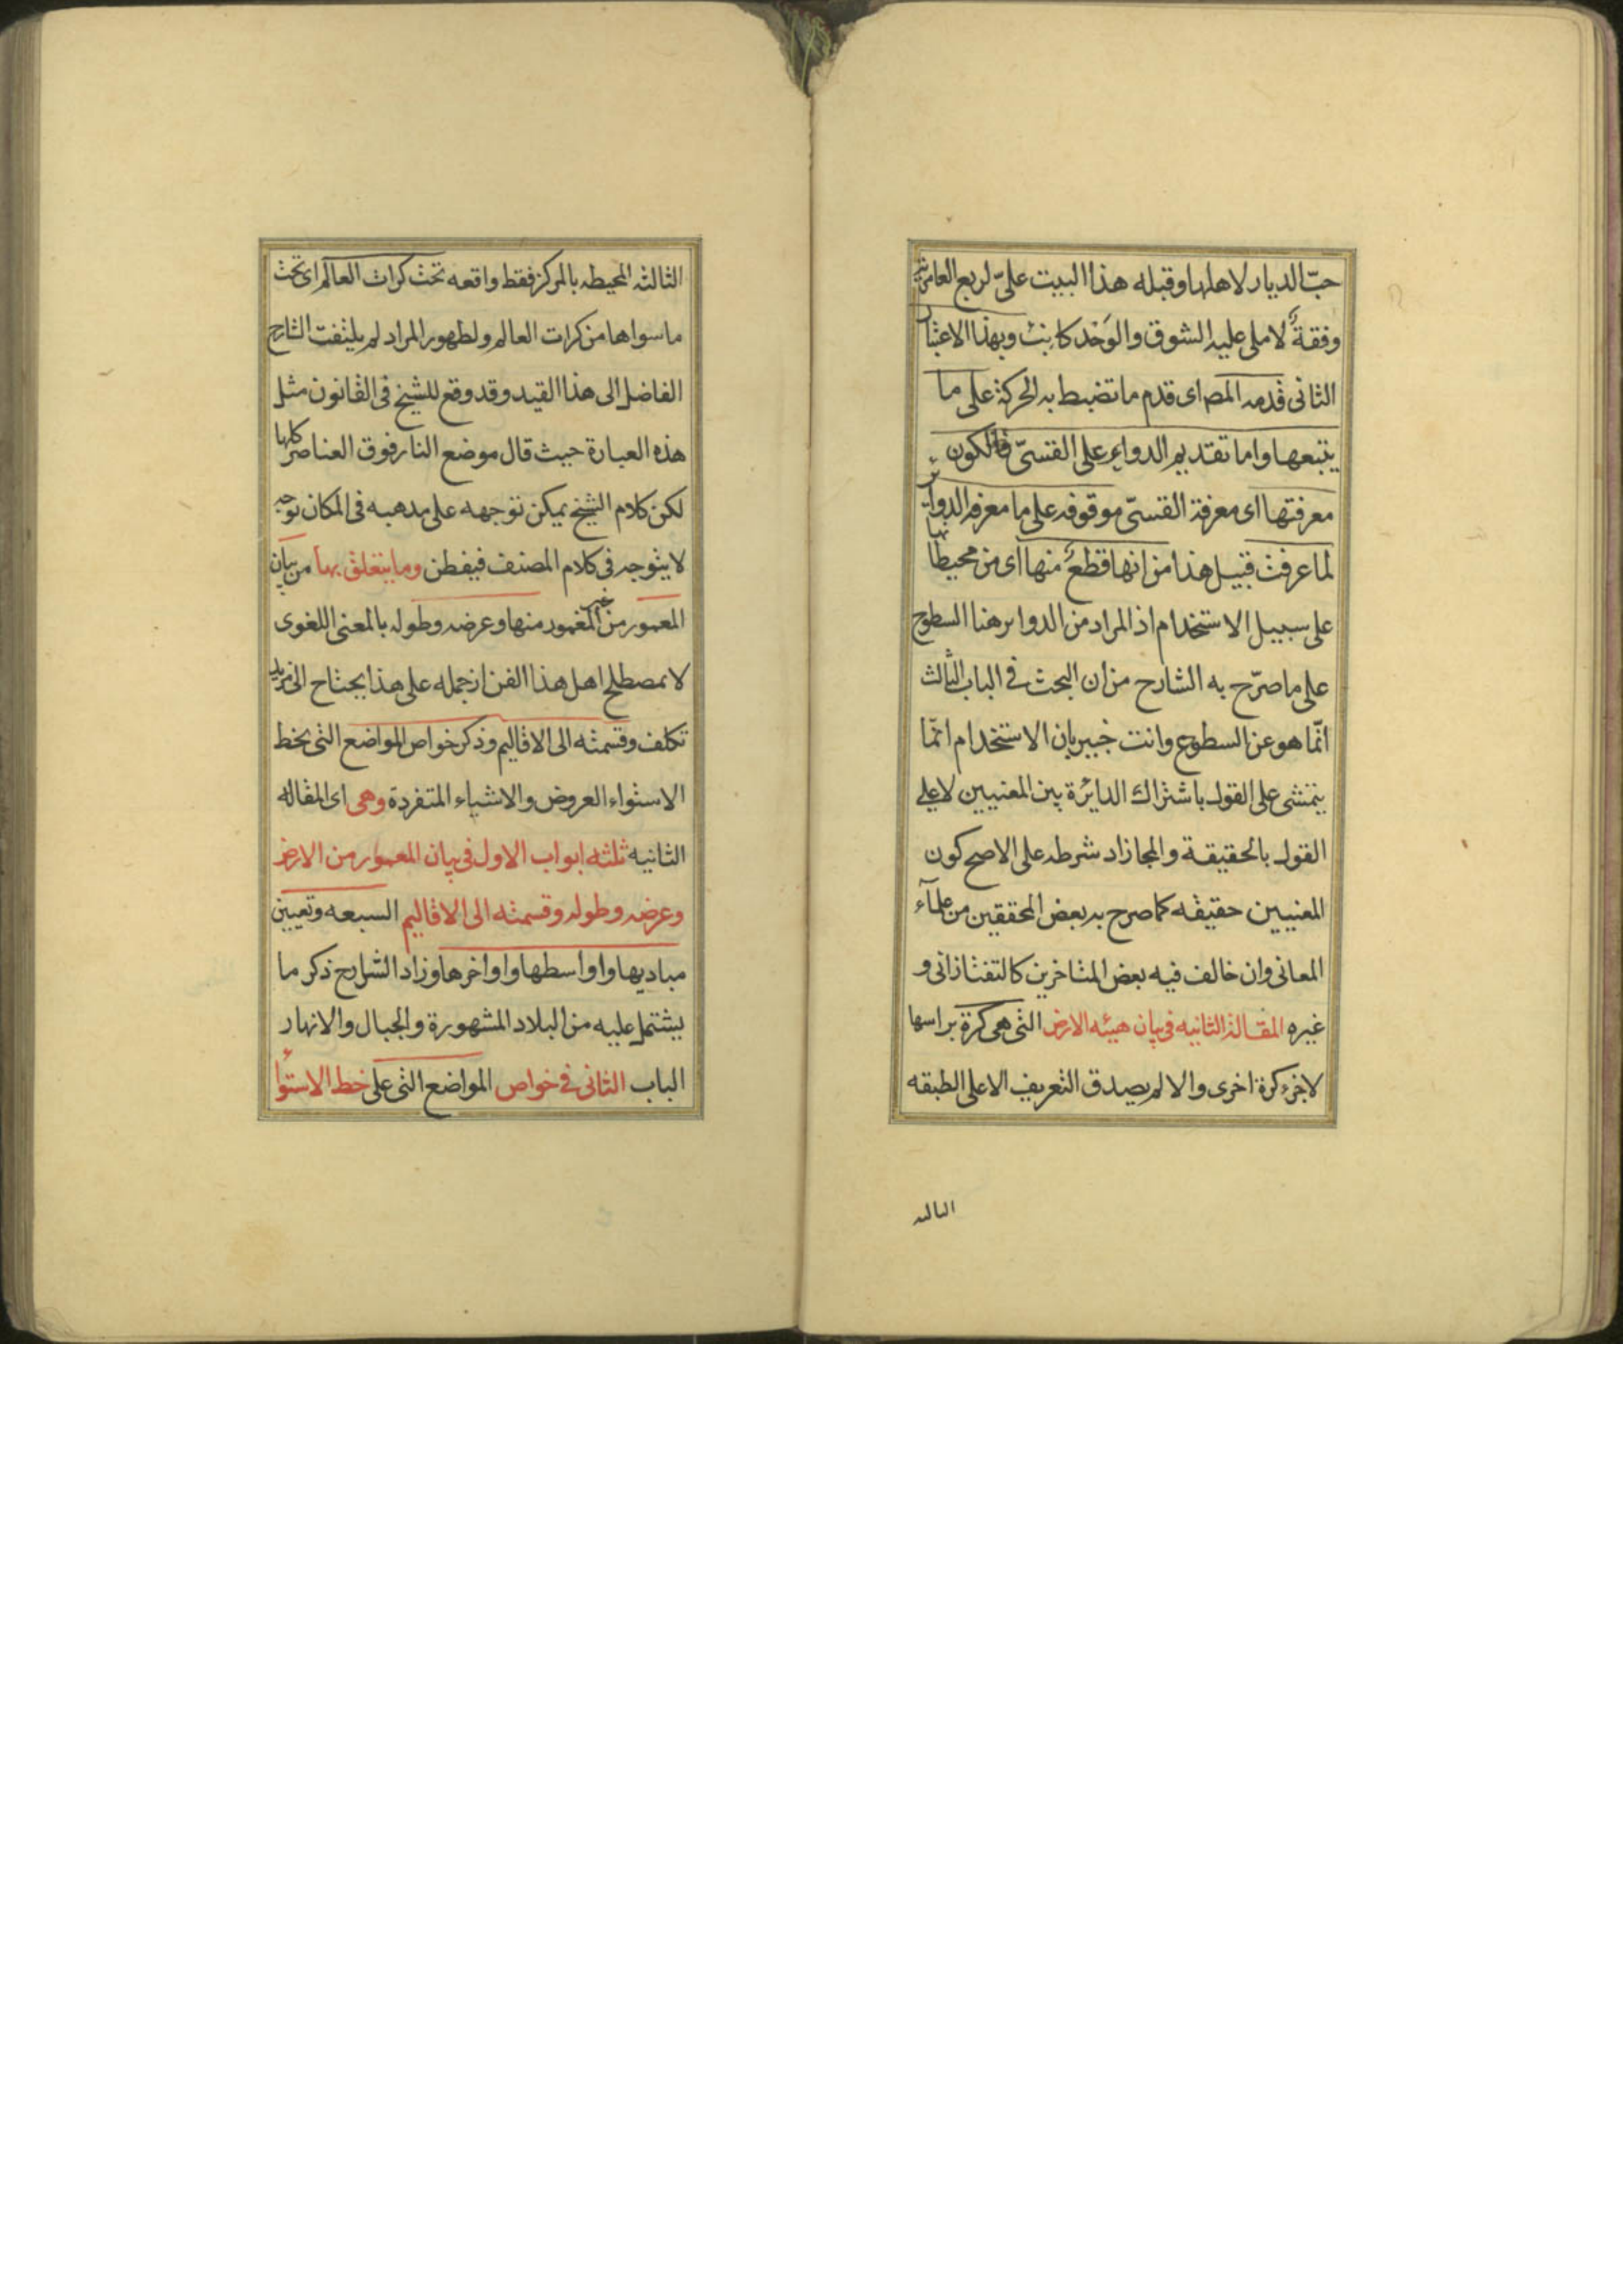 حبّ الديار لاهلها وقبله هذا البيت علىّ لربع العامرية
وقفةٌ لاملى عليه الشوق والوَجْد كاتب وبهذا الاعتبار
الثانى قدمه المص اى قدم ما تضبط به الحركة على ما
يتبعها واما تقديم الدواير على القسىّ فالكون
معرفتها اى معرفة القسىّ موقوفه على ما معرفه الدواير
لما عرفت قبيل هذا من انها قطعٌ منها اى من محيطاتها
على سبيل الاستخدام اذ المراد من الدواير هنا السطوح
على ما صرّح به الشارح من ان البحث فى الباب الثالث
انّما هو عن السطوح وانت خبير بان الاستخدام انّما
يتمشى على القول باشتراك الدائرة بين المعنيين لا على
القول بالحقيقة والمجاز اذ شرطه على الاصح كون
المعنيين حقيقه كما صرح به بعض المحققين من علمآء
المعانى وان خالف فيه بعض المتاخرين كالتفتازانى و
غيره المقالة الثانيه فى بيان هيئه الارض التى هى كرة براسها
لاجزء كرة اخرى والا لم يصدق التعريف الا على الطبقه
الثالثه
الثالثه المحيطه بالمركز فقط واقعه تحت كرات العالم اى تحت
ما سواها من كرات العالم ولظهور المراد لم يلتفت الشارح
الفاضل الى هذا القيد وقد وقع للشيخ فى القانون مثل
هذه العبارة حيث قال موضع النار فوق العناصر كلها
لكن كلام الشيخ يمكن توجهه على مذهبه فى المكان توجه
لا يتوجه فى كلام المصنف فيفطن وما يتعلق بها من بيان
المعمور من غير المعمور منها وعرضه وطوله بالمعنى اللغوى
لا بمصطلح اهل هذا الفن ازحمله على هذا يحتاح الى مزيد
تكلف وقسمته الى الاقاليم وذكر خواص المواضع التى بخط
الاستواء العروض والاشياء المتفردة وهى اى المقاله
الثانيه ثلثه ابواب الاول فى بيان المعمور من الارض
وعرضه وطوله وقسمته الى الاقاليم السبعه وتعيين
مباديها واواسطها واواخرها وزاد الشارح ذكر ما
يشتمل عليه من البلاد المشهورة والجبال والانهار
الباب الثانى فى خواص المواضع التى على خط الاستواء